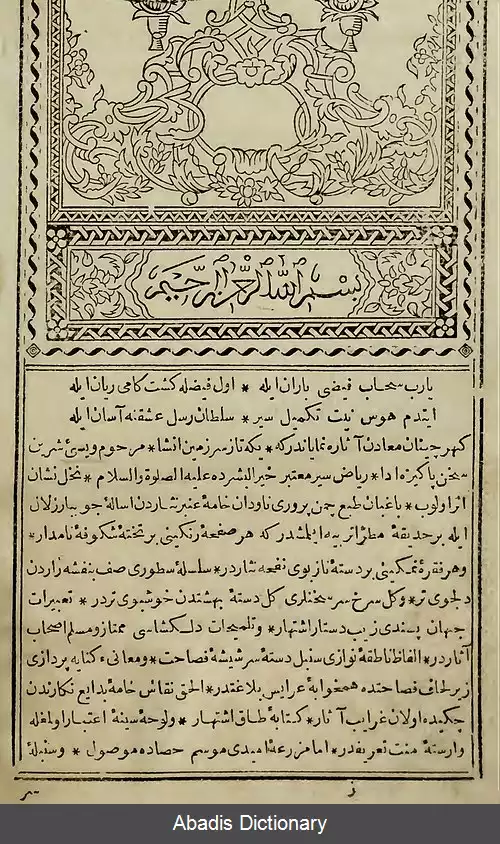 بسم الله الرحمن الرحيم
يارب سحاب فيضى باران ايله * اول فيضله كشت كامى ريان ايله
ايتدم هوس نيت تكميل سير * سلطان رسل عشقنه آسان ايله
كهرچينان معادن آثاره نماياندركه * يكه تاز سرزمين انشا * مرحوم ويسئ شيرين
سخن پاكيزه ادا * رياض سير معتبر خير البشرده عليه الصلوة والسلام * نخل نشان
اثر اولوب * باغبان طبع چمن پرورى ناودان خامهٔ عنبر نثاردن اسالهٔ جويبار زلال
ايله بر حديقهٔ مطرا ترتيب ايلمشدركه هر صفحهٔ رنكينى بر تختهٔ شكوفهٔ نامدار *
وهر فقرهٔ نمكينى بر دستهٔ نازبوى نفحه نثاردر * سلسلهٔ سطورى صف بنفشه زاردن
دلجوى تر * وكل سرخ سر سخنلرى كل دستهٔ بهشتدن خوشبوى تردر * تعبيرات
جهان پسندى زيب دستار اشتهار * وتلميحات دلكشاسى ممتاز ومسلم اصحاب
آثاردر * الفاظ ناطقه نوازى سنبل دستهٔ سرشيشهٔ فصاحت * ومعانىء كنايه پردازى
زير لحاف فصاحتده همخوابهٔ عرايس بلاغتدر * الحق نقاش خامهٔ بدايع نكارندن
چكيده اولان غرايب آثار * كتابهٔ طاق اشتهار * ولوحهٔ سينهٔ اعتبار اولمغله
وارستهٔ منت تعريفدر * اما مزرعهٔ اميدى موسم حصاده موصول * وسنبلهٔ
Abadis Dictionary